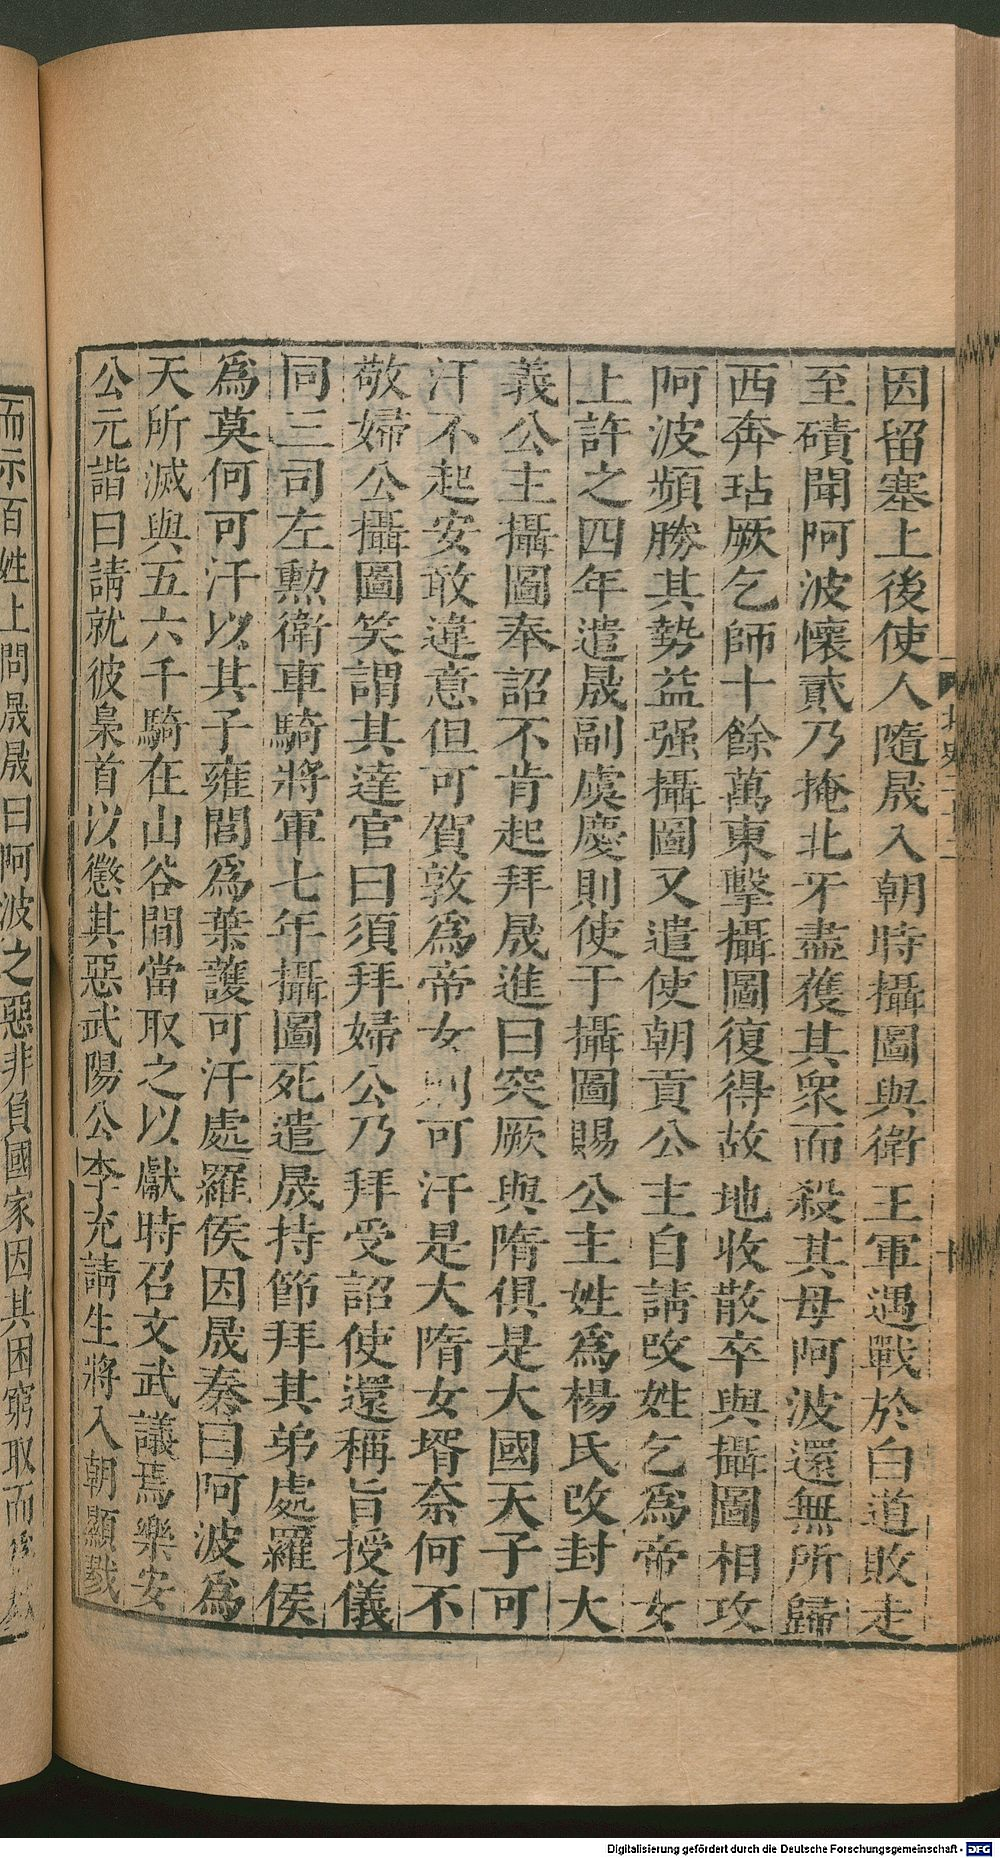 因留塞上後使人隨晟入朝時攝圖與衛王軍遇戰於白道敗走
至磧聞阿波懷貳乃掩北牙盡獲其衆而殺其母阿波還無所歸
西奔玷厥乞師十餘萬東擊攝圖復得故地收散卒與攝圖相攻
阿波頻勝其勢益强攝圖又遣使朝貢公主自請改姓乞爲帝女
上許之四年遣晟副虞慶則使于攝圖賜公主姓爲楊氏改封大
義公主攝圖奉詔不肯起拜晟進曰突厥與隋俱是大國天子可
汗不起安敢違意但可賀敦爲帝女則可汗是大隋女壻奈何不
敬婦公攝圖笑謂其達官曰須拜婦公乃拜受詔使還稱旨授儀
同三司左勲衛車騎將軍七年攝圖死遣晟持節拜其弟處羅侯
爲莫何可汗以其子雍閭爲葉護可汗處羅侯因晟奏曰阿波爲
天所滅與五六千騎在山谷間當取之以獻時召文武議焉樂安
公元諧曰請就彼梟首以懲其惡武陽公李充請生將入朝顯戮
而示百姓上問晟晟曰阿波之惡非負國家因其困窮取而
Digitalisierung gefördert durch die Deutsche Forschungsgemeinschaft - DFG